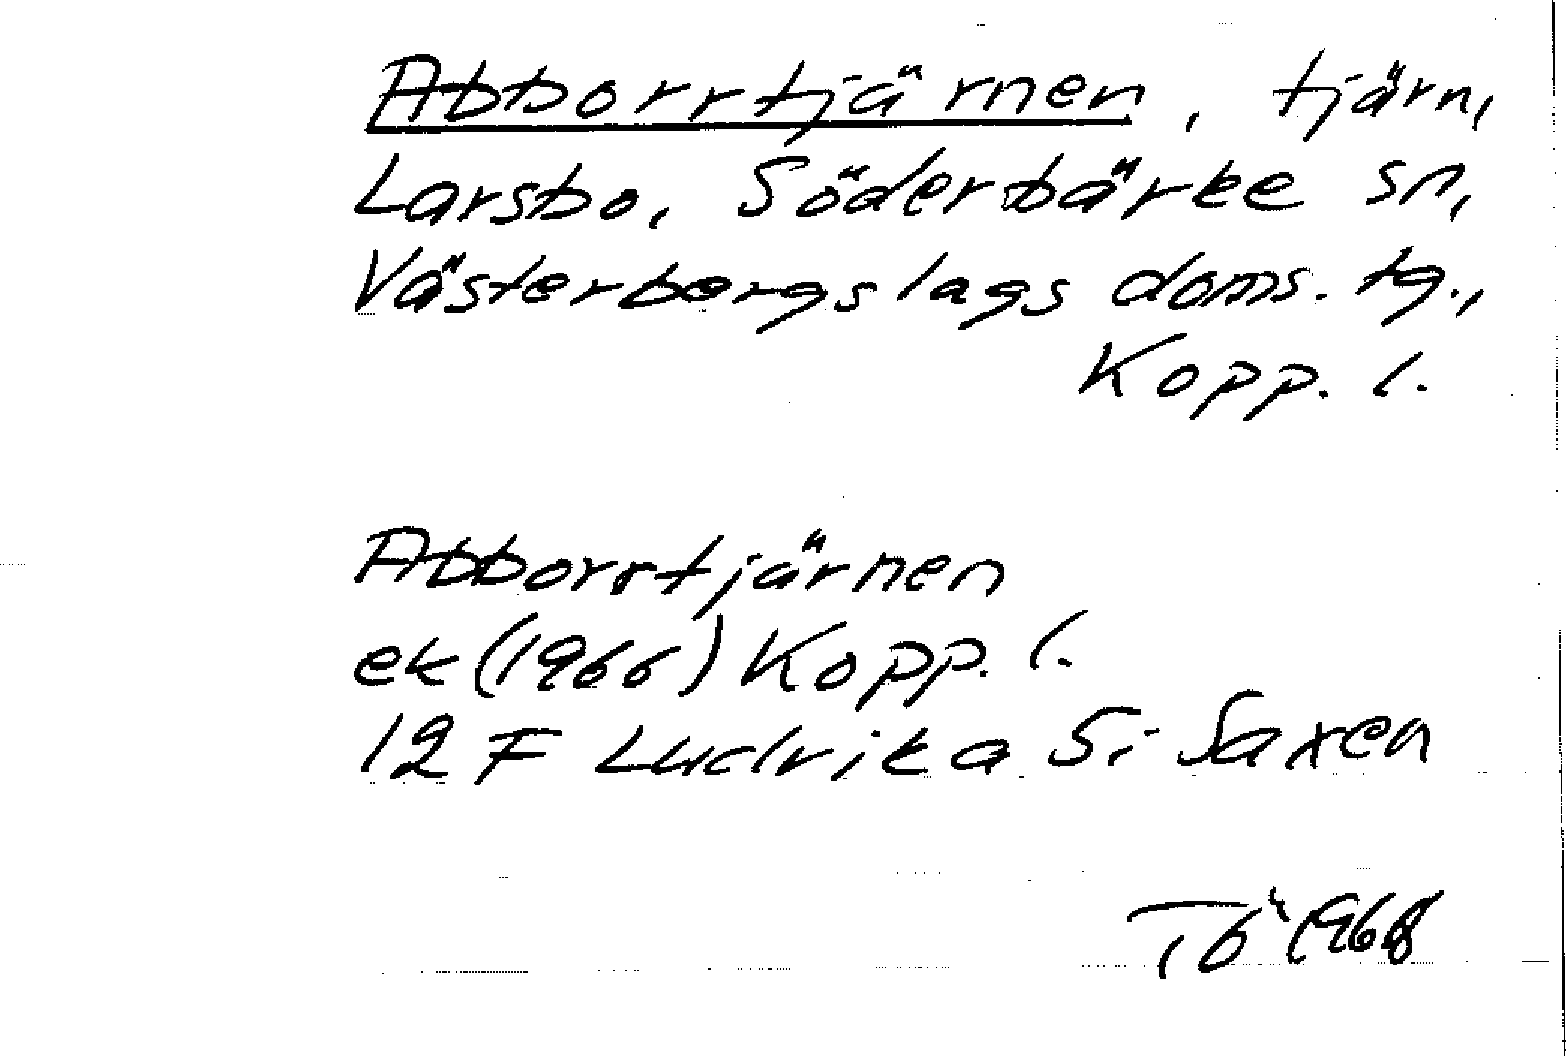 Abborrtjärnen, tjärn,
Larsbo, Söderbärke sn,
Västerbergslags doms. tg.,
Kopp. l.
Abborrtjärnen
ek (1966) Kopp. l.
12 F Ludvika S: Saxen
TÖ 1968